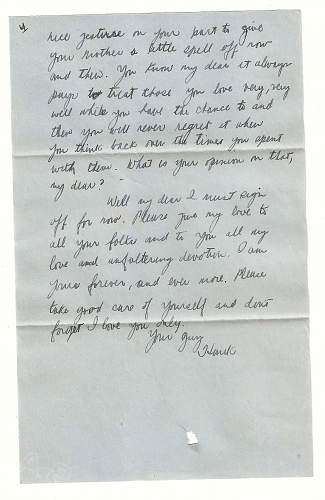 4
nice gesture on your part to give
your mother a little spell off now
and then. You know my dear it always
pays to treat those you love very, very
well while you have the chance to and
then you will never regret it when
you think back over the times you spent
with them. What is your opinion on that,
my dear?
Well my dear I must sign
off for now. Please give my love to
all your folks and to you all my
love and unfaltering devotion. I am
yours forever, and ever more. Please
take good care of yourself and don't
forget I love you only.
Your guy
Hank